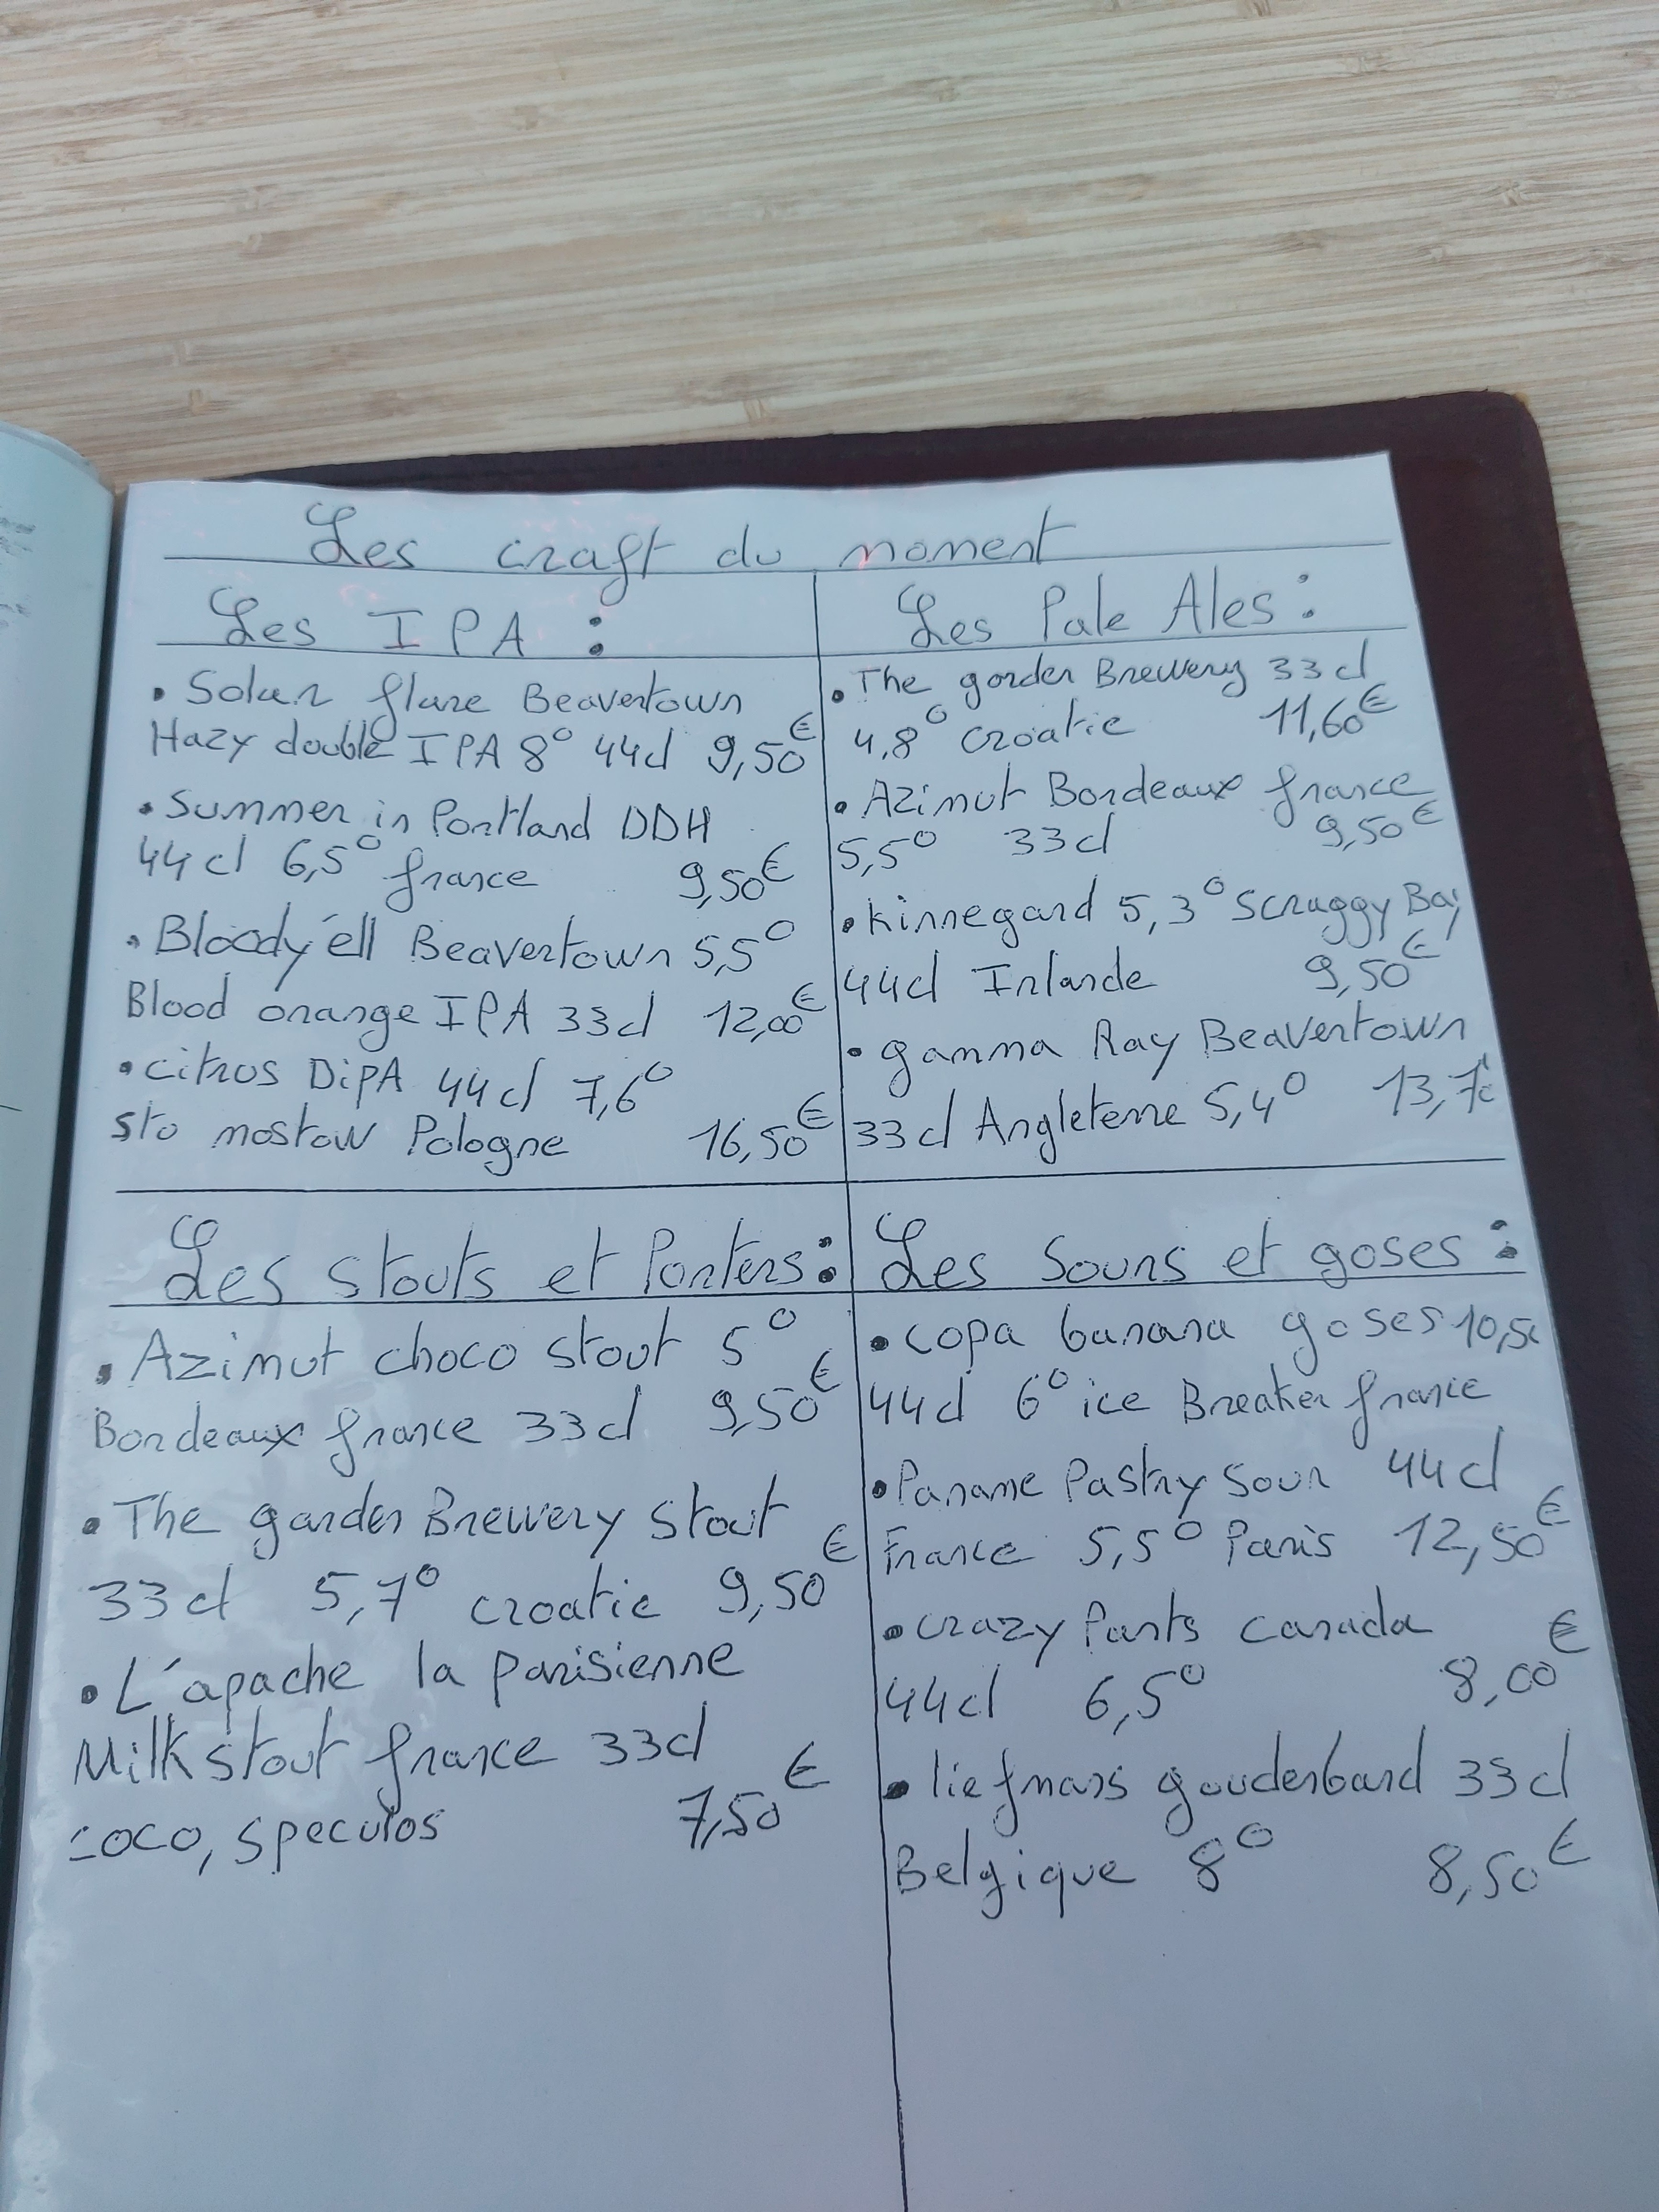 Les craft du moment
Les IPA :
• Solar flare Beavertown
Hazy double IPA 8° 44cl 9,50€
• Summer in Portland DDH
44cl 6,5° france 9,50€
• Bloody'ell Beavertown 5,5°
Blood orange IPA 33cl 12,00€
• citros DipA 44cl 7,6°
sto mostow Pologne 16,50€
Les Pale Ales :
• The garden Brewery 33cl
4,8° croatie 11,60€
• Azimut Bordeaux france
5,5° 33cl 9,50€
• Kinnegard 5,3° Scraggy Bay
44cl Irlande 9,50€
• gamma Ray Beavertown
33cl Angleterre 5,4° 13,7
Les stouts et Porters :
• Azimut choco stout 5°
Bordeaux france 33cl 9,50€
• The garden Brewery stout
33cl 5,7° croatie 9,50€
• L'apache la parisienne
Milk stout france 33cl
coco, speculos 7,50€
Les Sours et goses :
• copa banana goses 10,5
44cl 6° ice Breaker france
• Paname Pastry Sour 44cl
France 5,5° Paris 12,50€
• crazy Parts canada
44cl 6,5° 8,00€
• liefmans gouderband 33cl
Belgique 8° 8,50€